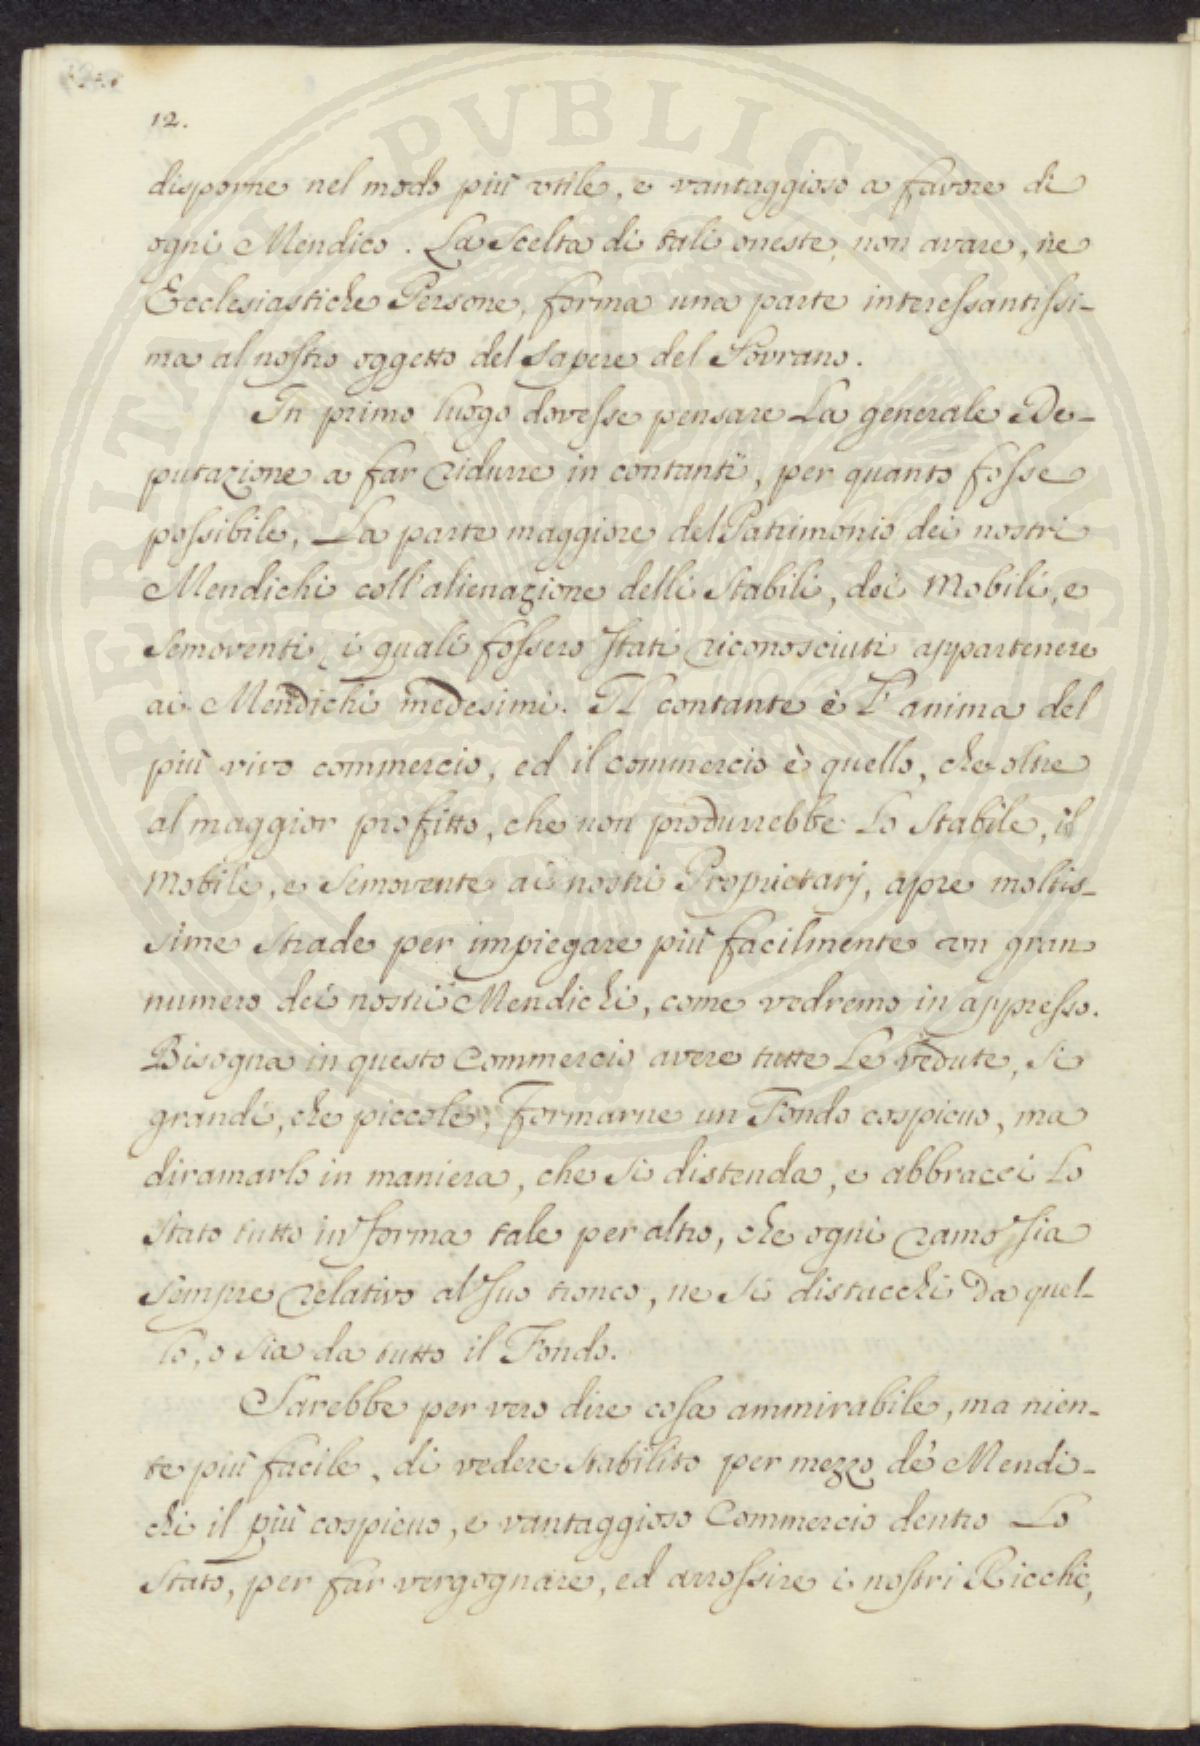 12.
disporne nel modo più utile, e vantaggioso a favore di
ogni Mendico. La Scelta di tali oneste, non avare, nè
Ecclesiastiche Persone, forma una parte interessantissi-
ma al nostro oggetto del Sapere del Sovrano.
In primo luogo dovesse pensare La generale De-
putazione a far ridurre in contanti, per quanto fosse
possibile, La parte maggiore del Patrimonio dei nostri
Mendichi coll'alienazione delli Stabili, dei Mobili, e
Semoventi, i quali fossero stati riconosciuti appartenere
ai Mendichi medesimi. Il contante è L'anima del
più vivo commercio, ed il commercio è quello, che oltre
al maggior profitto, che non produrrebbe Lo Stabile, il
Mobile, e Semovente ai nostri Proprietarj, apre moltis-
sime Strade per impiegare più facilmente un gran
numero dei nostri Mendichi, come vedremo in appresso.
Bisogna in questo Commercio avere tutte Le vedute, Si
grandi, che piccole, formarne un Fondo cospicuo, ma
diramarlo in maniera, che Si distenda, e abbracci Lo
Stato tutto in forma tale per altro, che ogni ramo sia
Sempre relativo al suo tronco, ne Si distacchi Da quel-
lo, o Sia da tutto il Fondo.
Sarebbe per vero dire cosa ammirabile, ma nien-
te più facile, di vedere Stabilito per mezzo de' Mendi-
chi il più cospicuo, e vantaggioso Commercio dentro Lo
Stato, per far vergognare, ed arrossire i nostri Ricchi,
PROSPERITATI PUBLICAE AUGENDAE